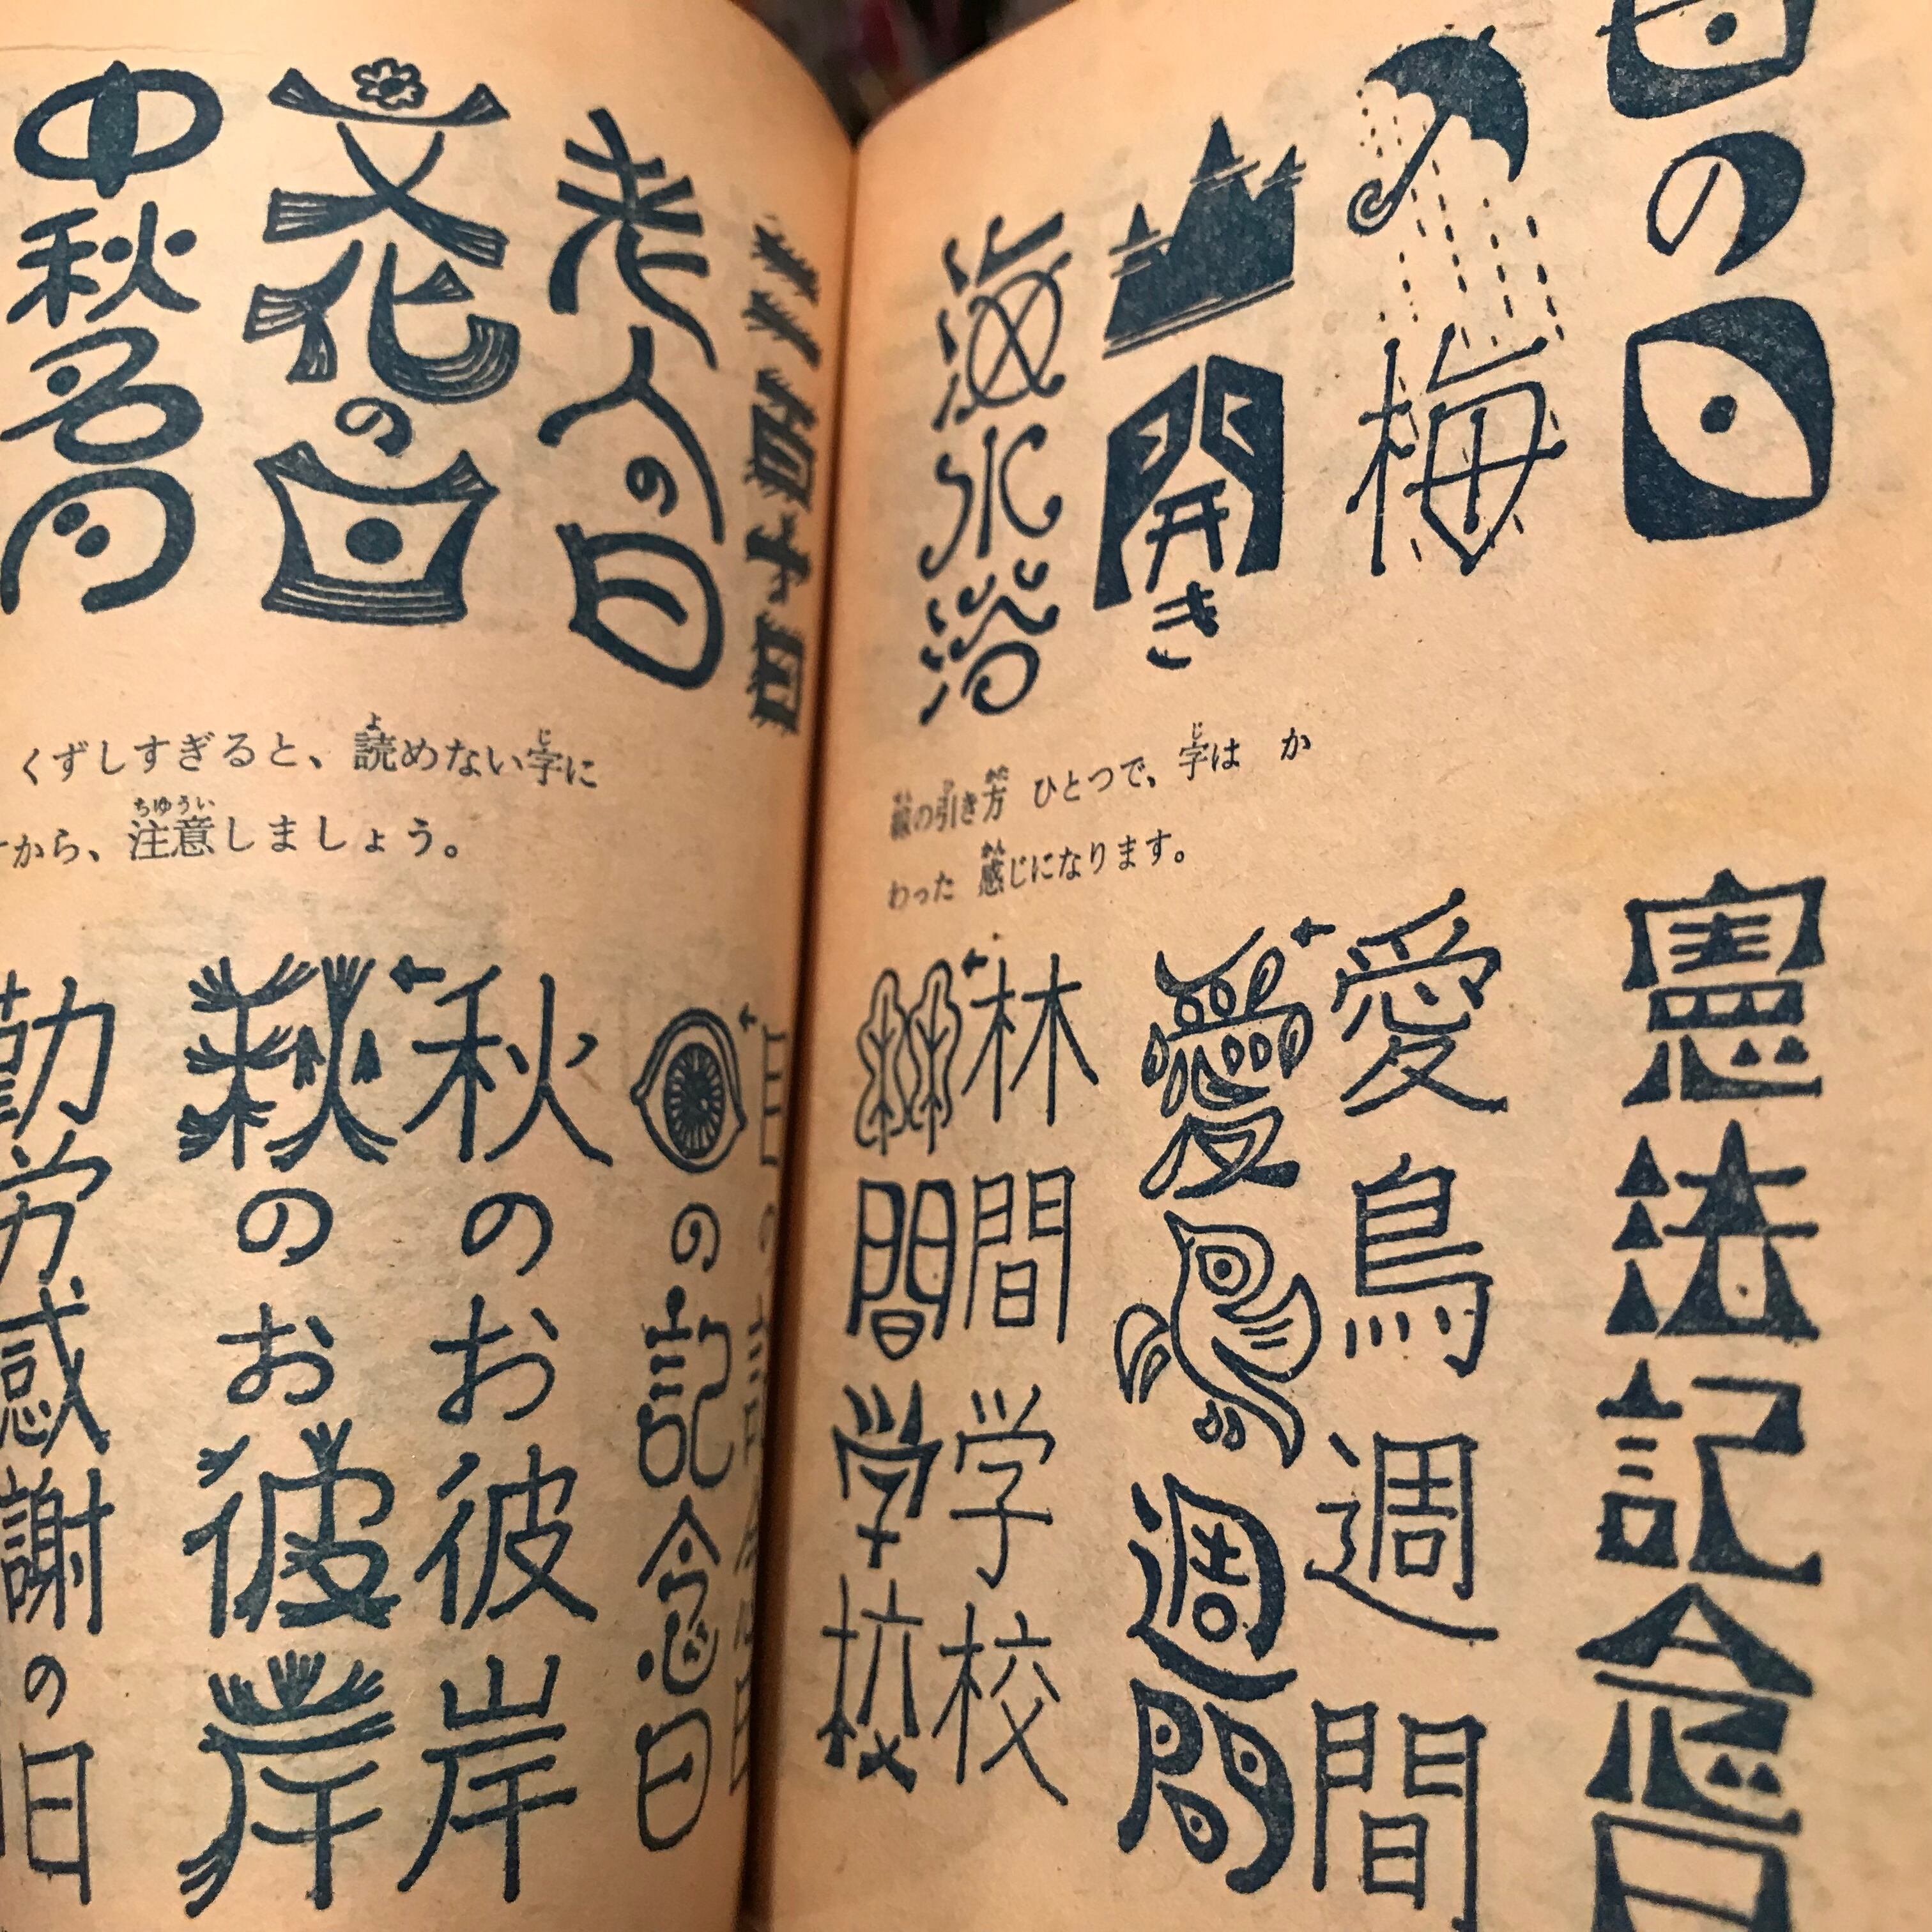 の日
梅
開き
海水浴
線の引き方 ひとつで、字は か
わった 感じになります。
憲法記念日
愛鳥週間
愛鳥週間
林間学校
林間学校
二百十日
老人の日
文化の日
中秋名月
くずしすぎると、読めない字に
から、注意しましょう。
の記念日
秋のお彼岸
秋のお彼岸
勤労感謝の日